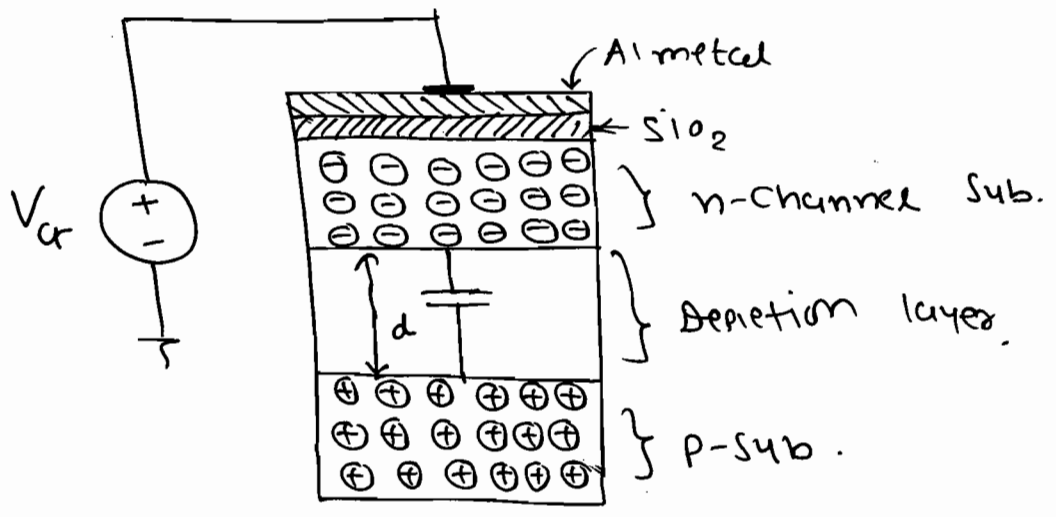 Al metal
SiO2
n-Channel Sub.
VG
+
-
d
Depletion layer.
P-Sub.